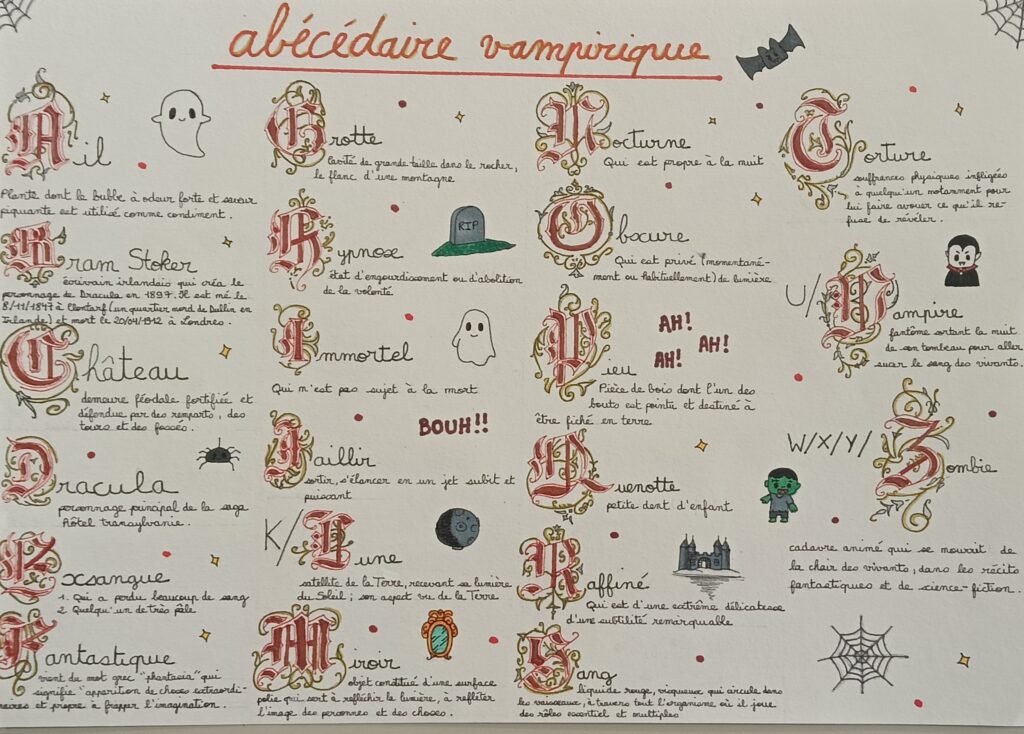 abécédaire vampirique
Ail
Plante dont le bulbe à odeur forte et saveur
piquante est utilisé comme condiment.
Bram Stoker
écrivain irlandais qui créa le
personnage de Dracula en 1897. Il est né le
8/11/1847 à Clontarf (un quartier nord de Dublin en
Irlande) et mort le 20/04/1912 à Londres.
Château
demeure féodale fortifiée et
défendue par des remparts, des
tours et des fossés.
Dracula
personnage principal de la saga
hôtel transylvanie.
Exsangue
1. Qui a perdu beaucoup de sang
2 Quelqu'un de très pâle
Fantastique
vient du mot grec "phantasia" qui
signifie "apparition de choses extraordi-
naires et propre à frapper l'imagination.
Grotte
Cavité de grande taille dans le rocher,
le flanc d'une montagne
Hypnose
état d'engourdissement ou d'abolition
de la volonté
RIP
Immortel
Qui n'est pas sujet à la mort
BOUH!!
Jaillir
sortir, s'élancer en un jet subit et
puissant
K/Lune
satellite de la Terre, recevant sa lumière
du Soleil ; son aspect vu de la Terre
Miroir
objet constitué d'une surface
polie qui sert à réfléchir la lumière, à refléter
l'image des personnes et des choses.
Nocturne
Qui est propre à la nuit
Obscure
Qui est privé (momentané-
ment ou habituellement) de lumière
Pieu
AH!
AH!
AH!
Pièce de bois dont l'un des
bouts est pointu et destiné à
être fiché en terre
Quenotte
petite dent d'enfant
Raffiné
Qui est d'une extrême délicatesse
d'une subtilité remarquable
Sang
liquide rouge, visqueux qui circule dans
les vaisseaux, à travers tout l'organisme où il joue
des rôles essentiel et multiples
Torture
souffrances physiques infligées
à quelqu'un notamment pour
lui faire avouer ce qu'il re-
fuse de révéler.
U/Vampire
fantôme sortant la nuit
de son tombeau pour aller
sucer le sang des vivants.
W/X/Y/Zombie
cadavre animé qui se nourrit de
la chair des vivants, dans les récits
fantastiques et de science-fiction.